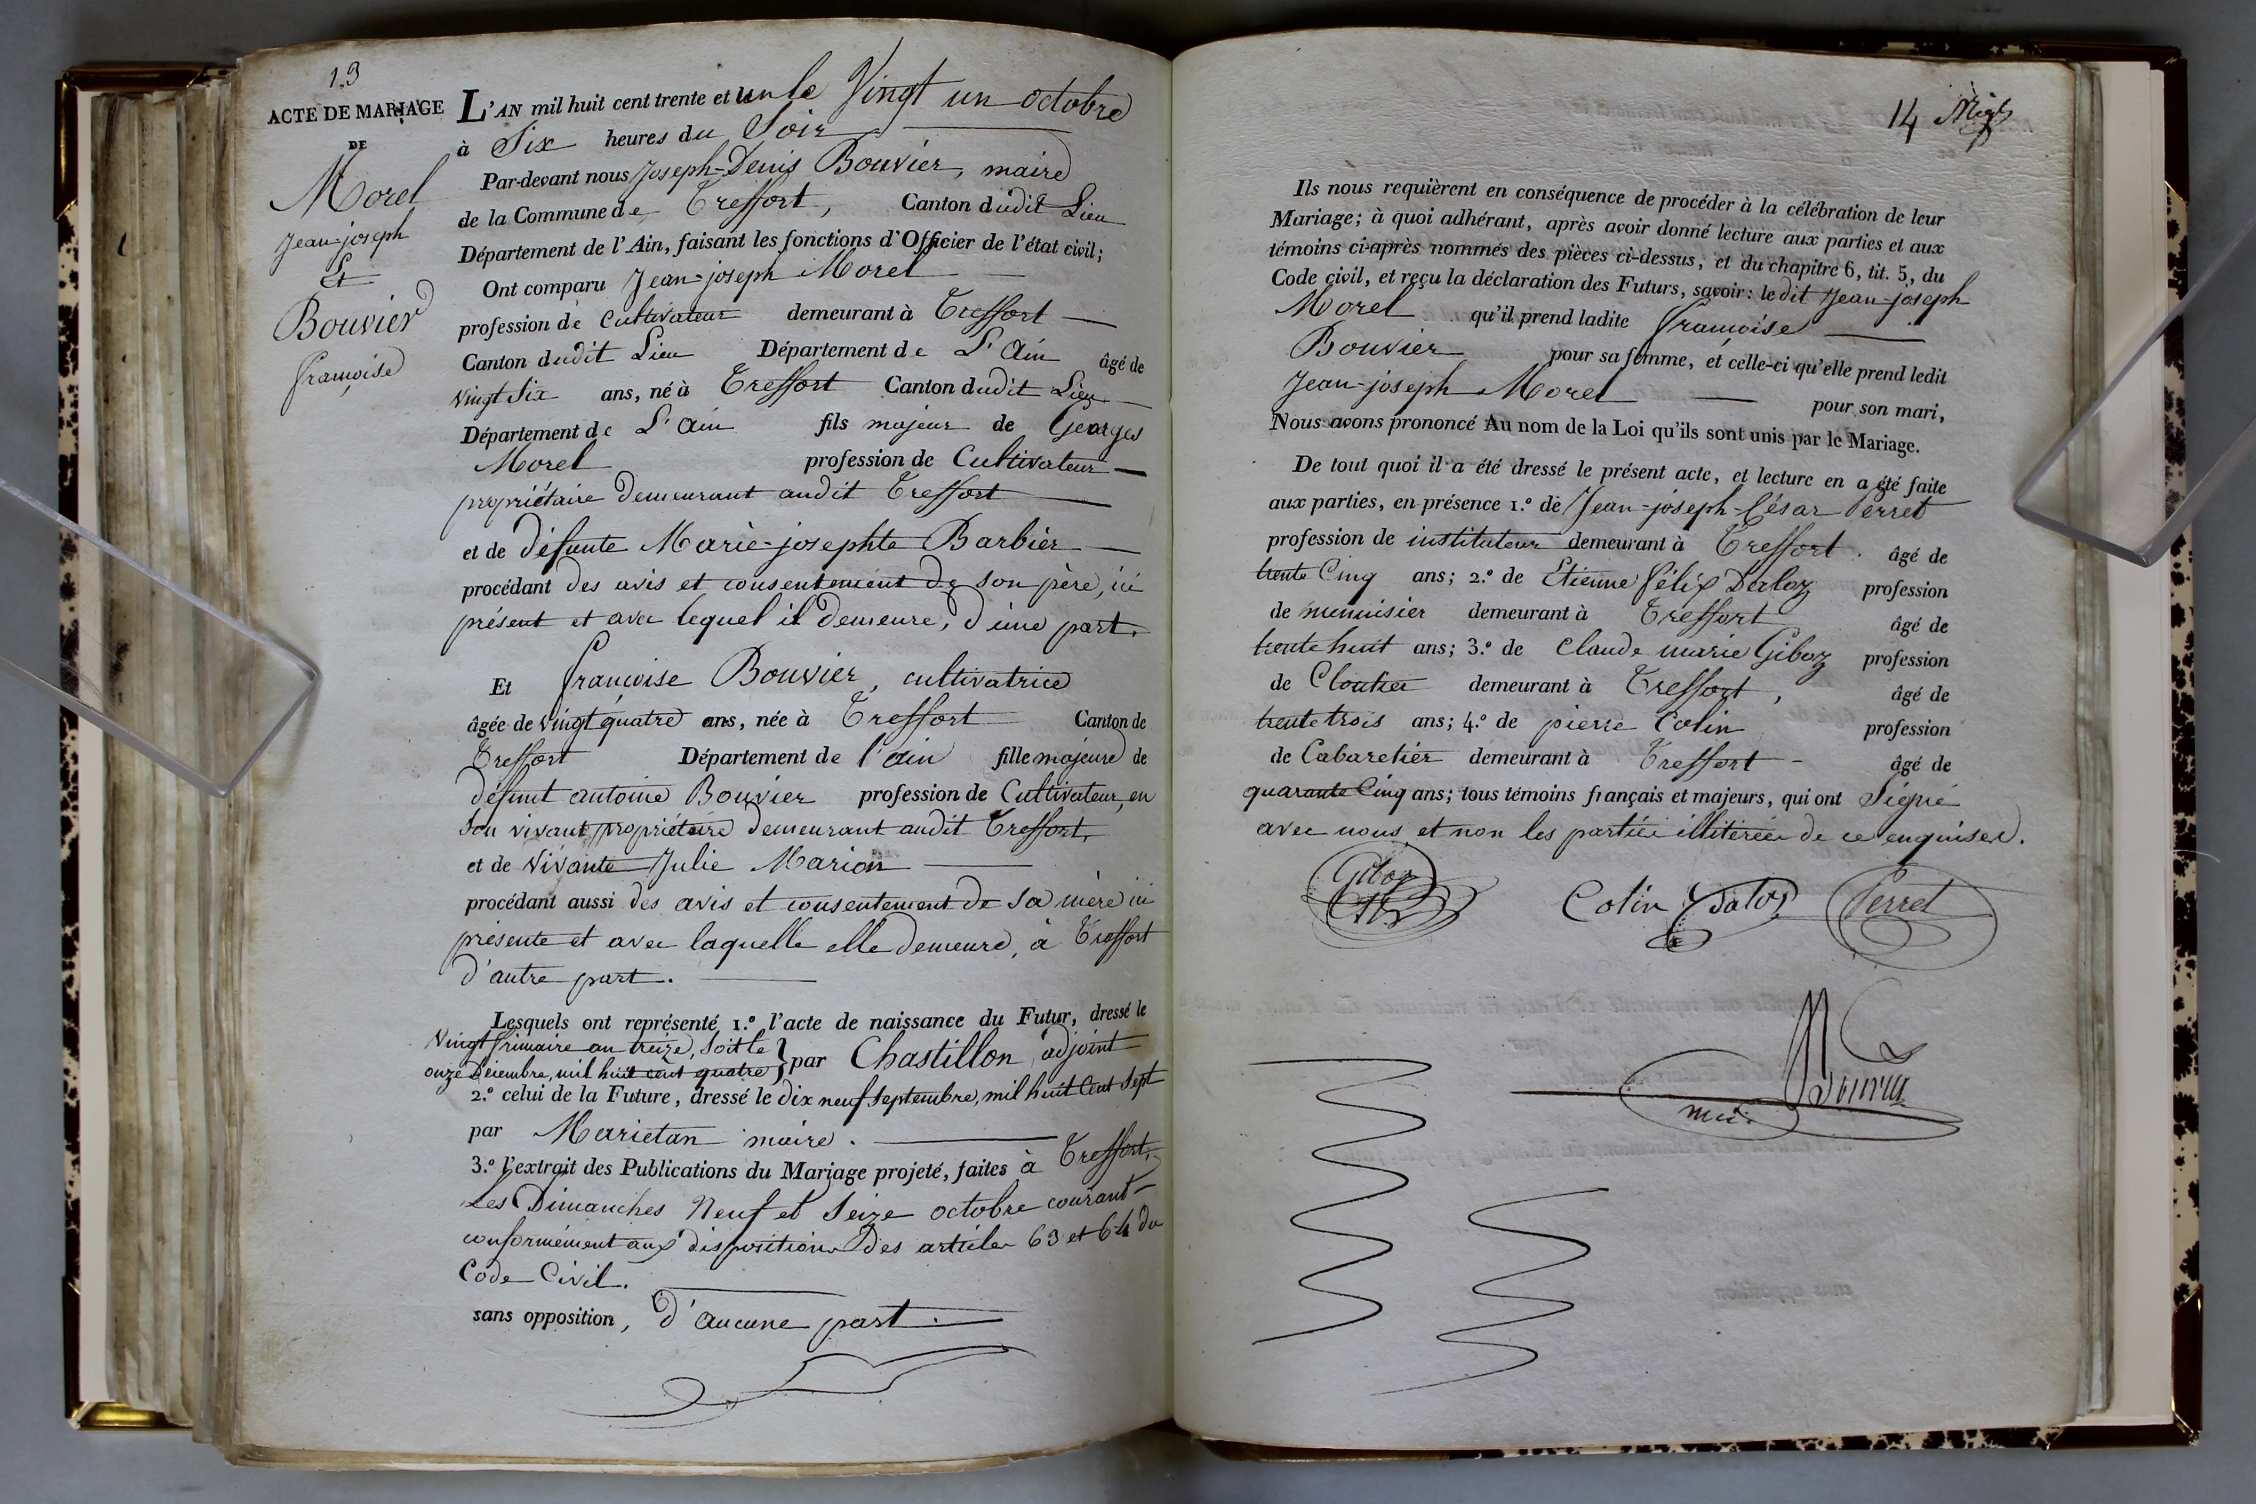 13
ACTE DE MARIAGE
DE
Morel
Jean-joseph
Et
Bouvier
françoise
L'AN mil huit cent trente et un le Vingt un octobre
à Six heures du Soir
Par-devant nous Joseph-Denis Bouvier, maire
de la Commune de Treffort, Canton dudit Lieu
Département de l'Ain, faisant les fonctions d'Officier de l'état civil;
Ont comparu Jean-joseph Morel
profession de Cultivateur demeurant à Treffort
Canton dudit Lieu Département de L'Ain âgé de
vingt Six ans, né à Treffort Canton dudit Lieu
Département de L'Ain fils majeur de Georges
Morel profession de Cultivateur
propriétaire demeurant audit Treffort
et de défunte Marie-josephte Barbier
procédant des avis et consentement de son père, ici
présent et avec lequel il demeure, d'une part.
Et françoise Bouvier, cultivatrice
âgée de vingt quatre ans, née à Treffort Canton de
Treffort Département de l'ain fille majeure de
défunt antoine Bouvier profession de Cultivateur, en
son vivant propriétaire demeurant audit Treffort,
et de vivante Julie Marion
procédant aussi des avis et consentement de sa mère ici
présente et avec laquelle elle demeure, à Treffort
d'autre part.
Lesquels ont représenté 1.º l'acte de naissance du Futur, dressé le
Vingt frimaire an treize, soit le
onze Décembre, mil huit cent quatre } par Chastillon adjoint
2.º celui de la Future, dressé le dix neuf septembre, mil huit Cent Sept
par Marietan maire.
3.º l'extrait des Publications du Mariage projeté, faites à Treffort,
Les Dimanches Neuf et Seize octobre courant
conformément aux dispositions des articles 63 et 64 du
Code Civil.
sans opposition, d'aucune part.
14
Ils nous requièrent en conséquence de procéder à la célébration de leur
Mariage; à quoi adhérant, après avoir donné lecture aux parties et aux
témoins ci-après nommés des pièces ci-dessus, et du chapitre 6, tit. 5, du
Code civil, et reçu la déclaration des Futurs, savoir: le dit Jean-joseph
Morel qu'il prend ladite françoise
Bouvier pour sa femme, et celle-ci qu'elle prend ledit
Jean-joseph Morel pour son mari,
Nous avons prononcé Au nom de la Loi qu'ils sont unis par le Mariage.
De tout quoi il a été dressé le présent acte, et lecture en a été faite
aux parties, en présence 1.º de Jean-joseph-César Perret
profession de instituteur demeurant à Treffort. âgé de
trente Cinq ans; 2.º de Etienne félix Daloz profession
de menuisier demeurant à Treffort âgé de
trente huit ans; 3.º de Claude marie Giboz profession
de Cloutier demeurant à Treffort, âgé de
trente trois ans; 4.º de pierre Colin profession
de Cabaretier demeurant à Treffort âgé de
quarante Cinq ans; tous témoins français et majeurs, qui ont Signé
avec nous et non les parties illitérées de ce enquises.
Giboz
Colin Daloz Perret
Bouvier